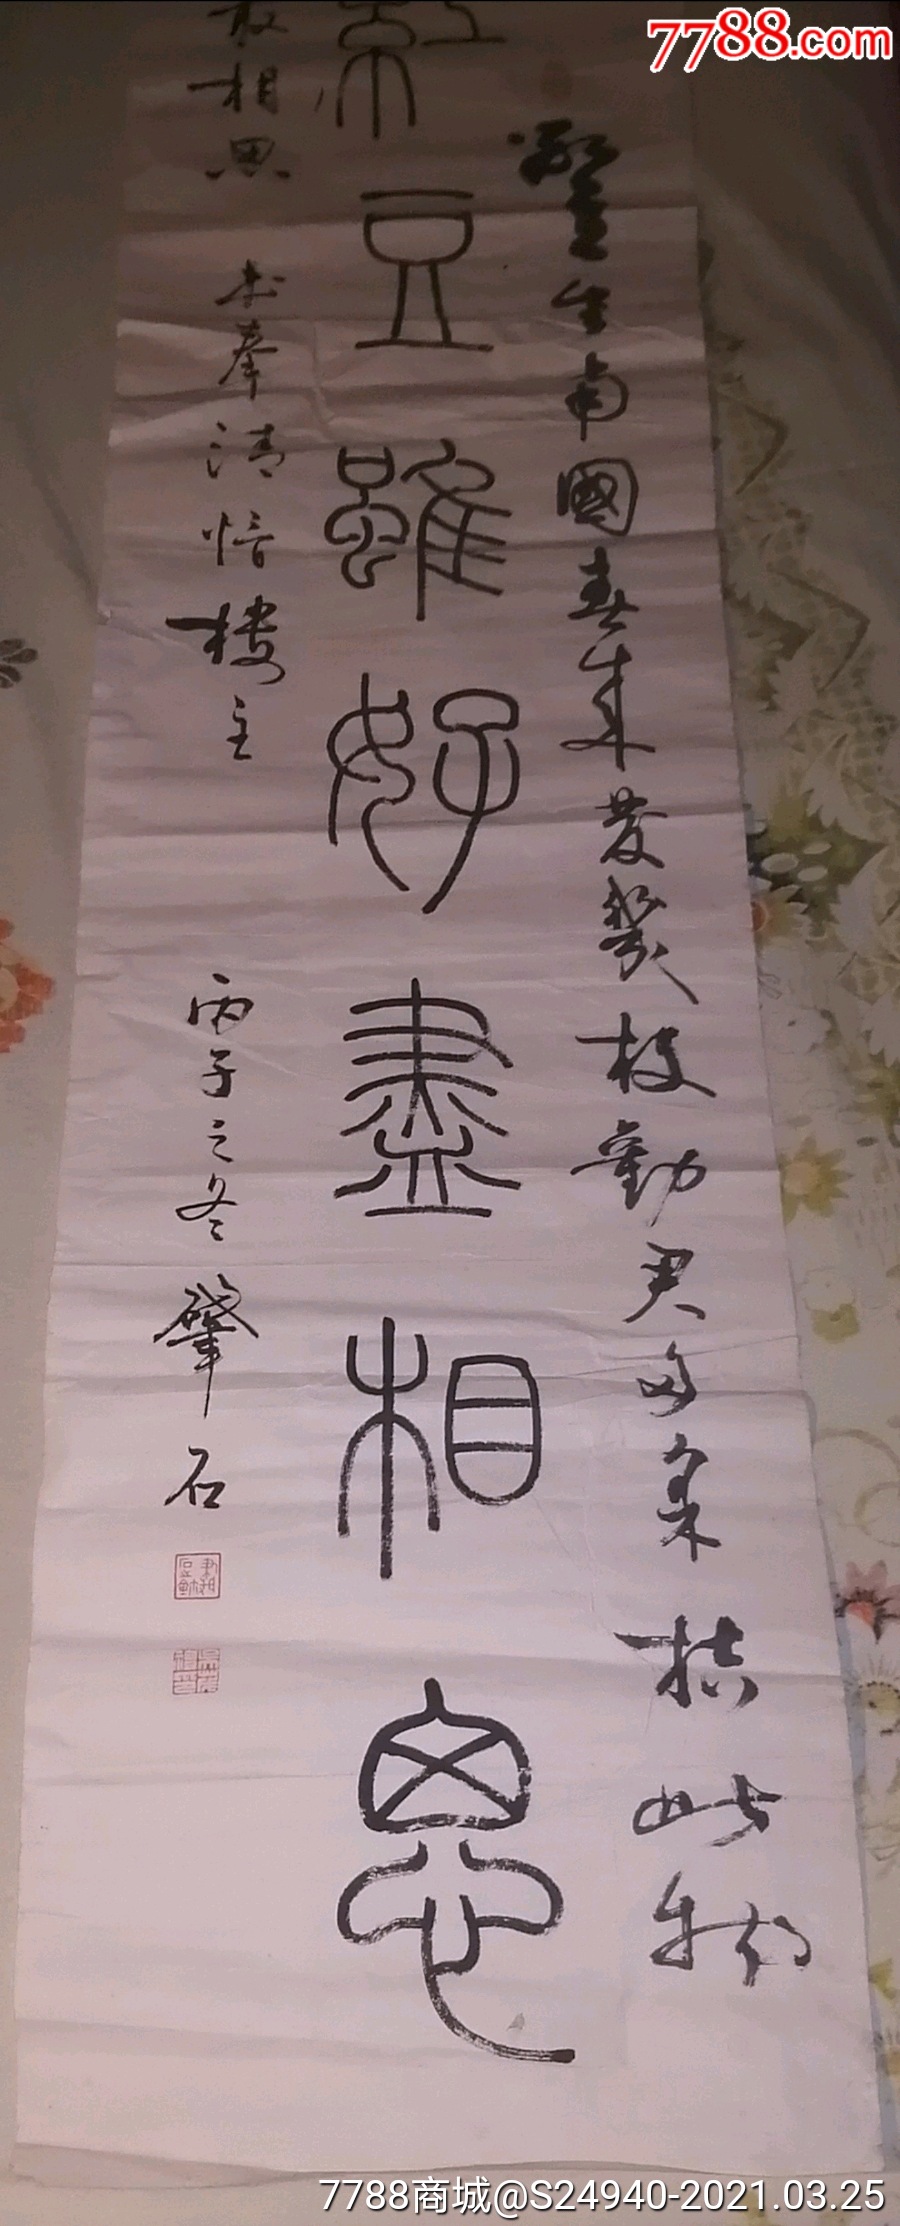 7788.com
紅豆生南國春來發幾枝勸君多采拮此物
紅豆雖好盡相思
最相思 书奉清愔樓主 丙子之冬 肇石
7788商城@S24940-2021.03.25